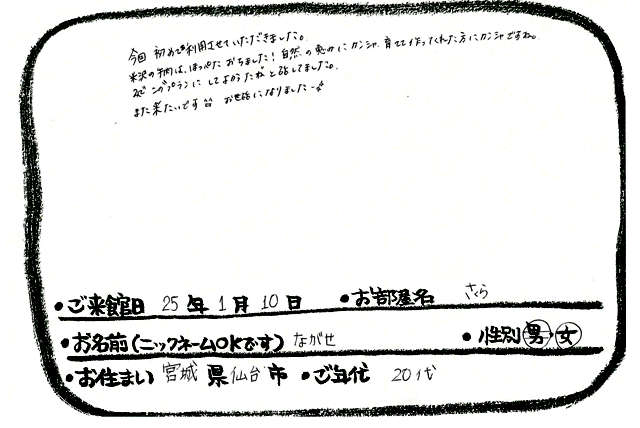 今回 初めて利用させていただきました。
米沢の牛肉は、ほっぺた おちました! 自然の恵みにカンシャ 育てて作ってくれた方にカンシャですね。
プランに してよかったねと話してました。
また来たいです お世話になりました
・ご来館日 25年 1月 10日 ・お部屋名 さくら
・お名前(ニックネームOKです) ながせ ・性別 男・女
・お住まい 宮城県仙台市 ・ご年代 20代